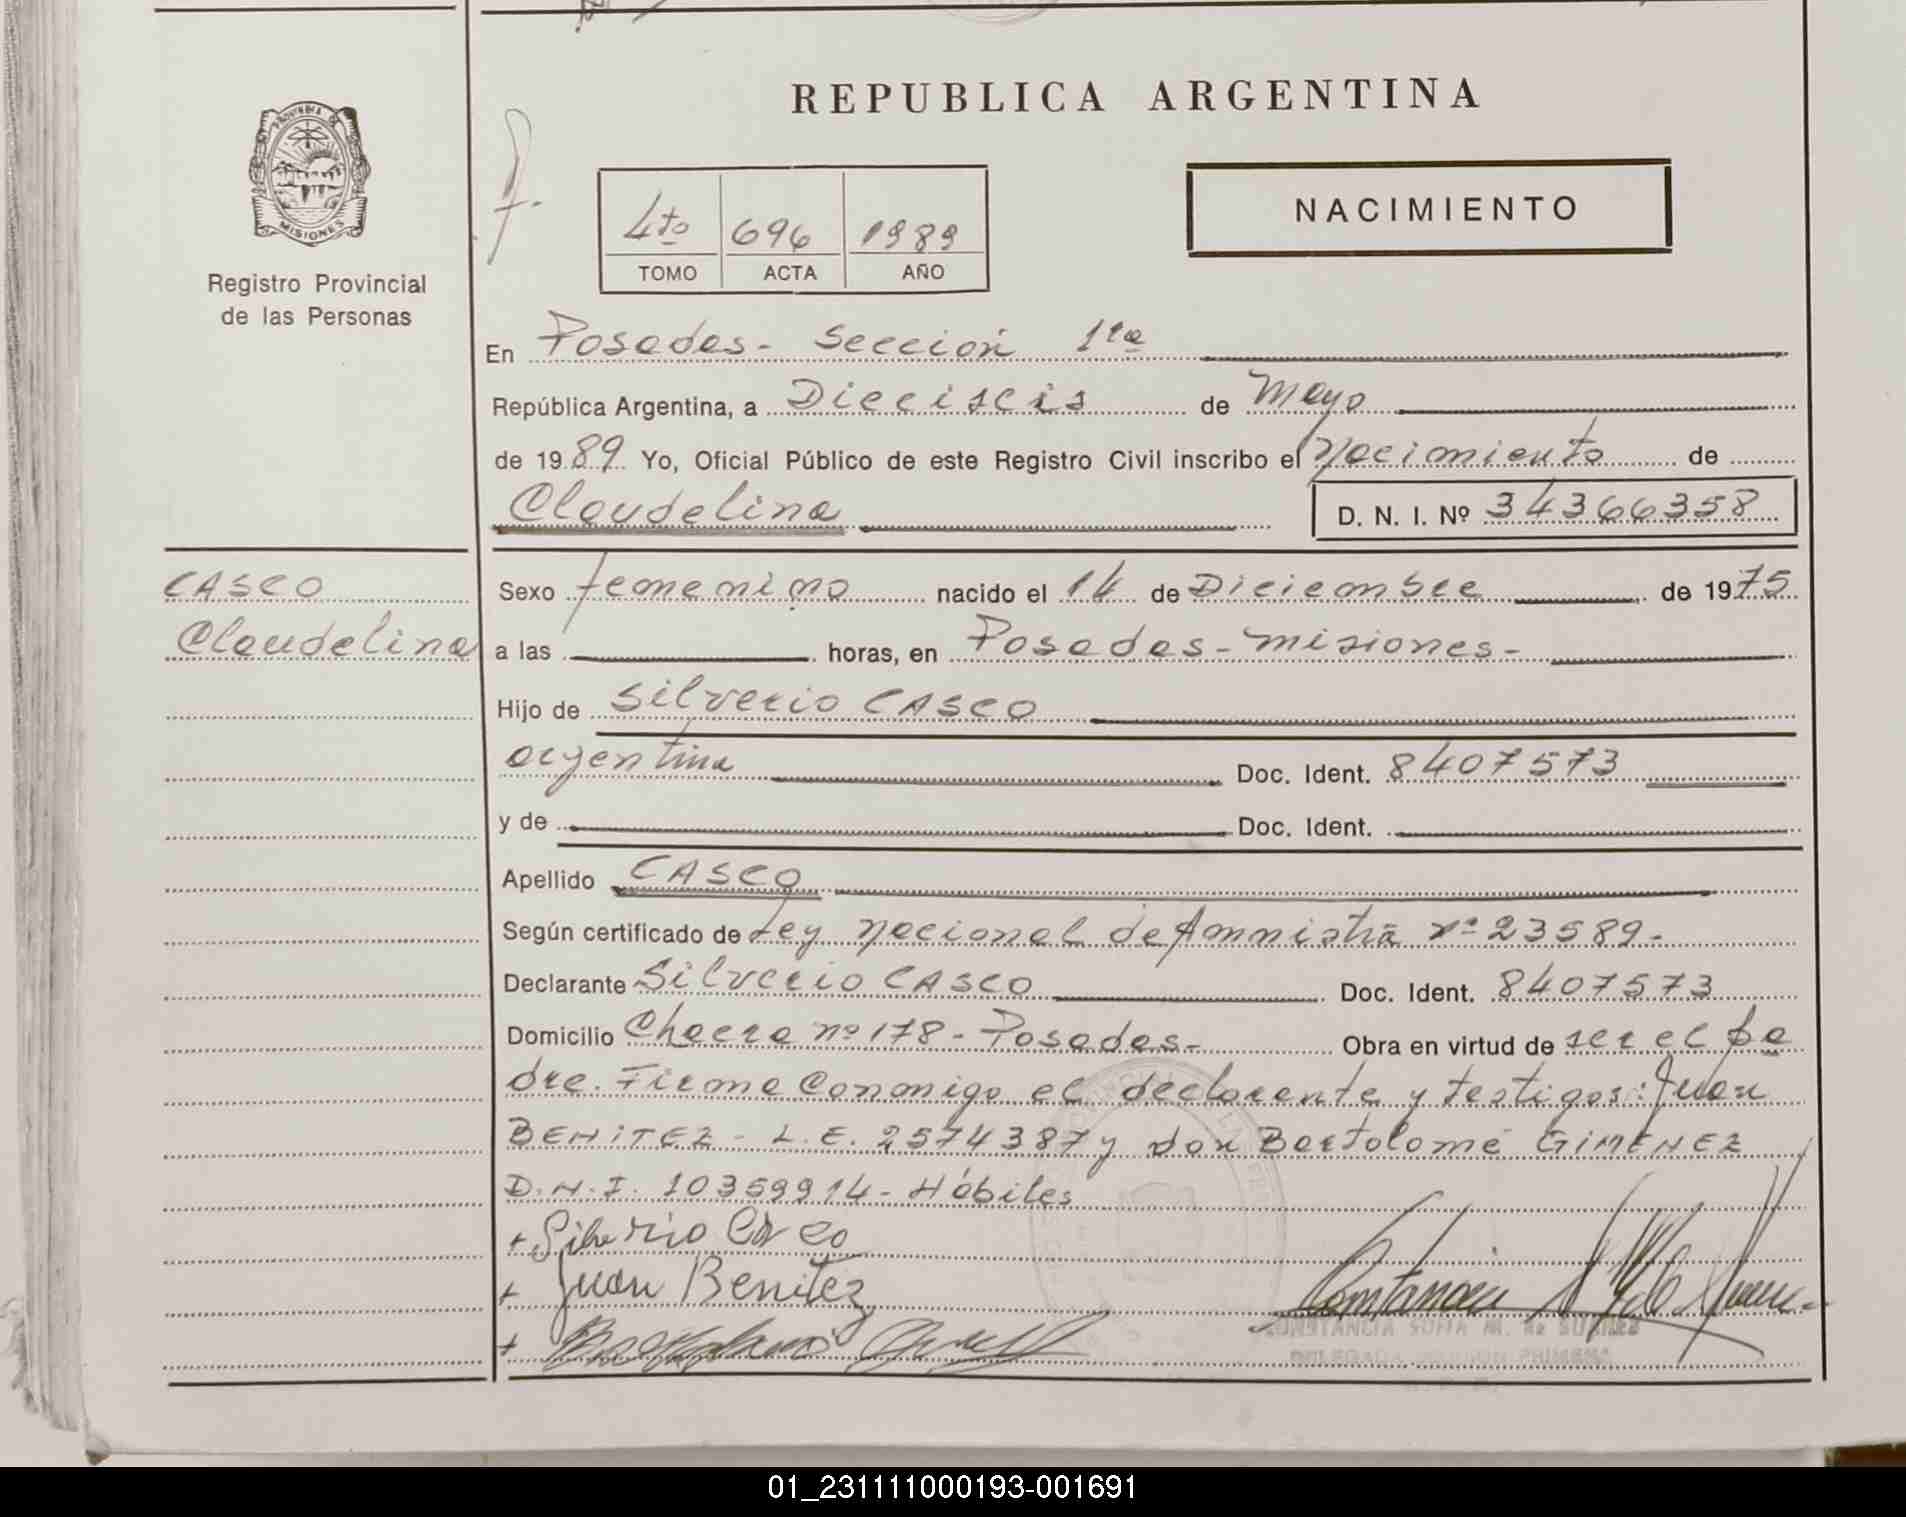 REPUBLICA ARGENTINA
PROVINCIA DE
MISIONES
Registro Provincial
de las Personas
4to 696 1989
TOMO ACTA AÑO
NACIMIENTO
En Posadas - Sección 1ra
República Argentina, a Dieciseis de Mayo
de 1989 Yo, Oficial Público de este Registro Civil inscribo el Nacimiento de
Claudelina D. N. I. Nº 34366358
CASCO
Claudelina
Sexo femenino nacido el 14 de Diciembre de 1975
a las horas, en Posadas - Misiones -
Hijo de Silverio CASCO
argentina Doc. Ident. 8407573
y de Doc. Ident.
Apellido CASCO
Según certificado de Ley Nacional de Amnistia nº 23589 -
Declarante Silverio CASCO Doc. Ident. 8407573
Domicilio Chacra nº 178 - Posadas - Obra en virtud de ser el pa
dre. Firma Conmigo el declarante y testigos: Juan
BENITEZ - L.E. 2574387 y don Bartolomé GIMENEZ
D.N.I. 10359914 - Hábiles
+ Silverio Casco
+ Juan Benitez
+
CONSTANCIA SOFIA M. de SUAREZ
DELEGADA SECCION PRIMERA
01_231111000193-001691